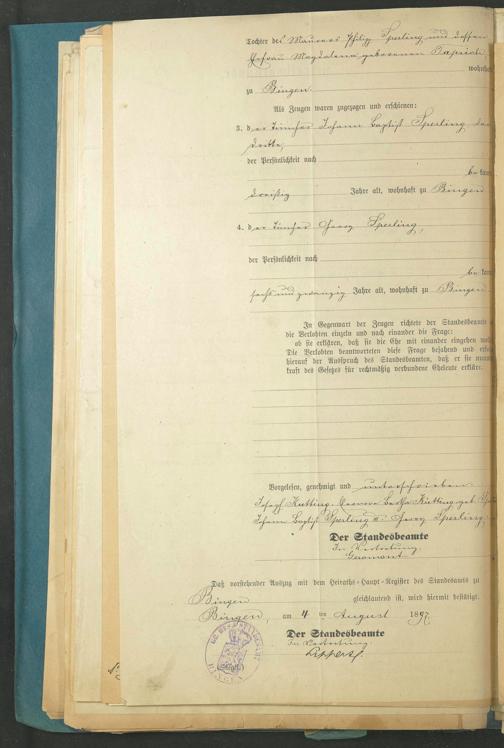 Tochter des Maurers Philipp Sperling und dessen
Ehefrau Magdalena geborenen
wohnhaft
zu Bingen.
Als Zeugen waren zugezogen und erschienen:
3. der Tüncher Johann Baptist Sperling der
Dritte,
der Persönlichkeit nach
be kannt
dreißig Jahre alt, wohnhaft zu Bingen
4. der Tüncher Georg Sperling,
der Persönlichkeit nach
be kannt
sechs und zwanzig Jahre alt, wohnhaft zu Bingen
In Gegenwart der Zeugen richtete der Standesbeamte
die Verlobten einzeln und nach einander die Frage:
ob sie erklären, daß sie die Ehe mit einander eingehen
Die Verlobten beantworteten diese Frage bejahend und
hierauf der Ausspruch des Standesbeamten, daß er sie
kraft des Gesetzes für rechtmäßig verbundene Eheleute erkläre.
Vorgelesen, genehmigt und unterschrieben
Joseph Kutting. Bertha Kutting geb.
Johann Baptist Sperling u. Georg Sperling.
Der Standesbeamte
In Vertretung.
Daß vorstehender Auszug mit dem Heiraths-Haupt-Register des Standesamts zu
Bingen gleichlautend ist, wird hiermit bestätigt.
Bingen, am 4ten August 1897.
Der Standesbeamte
In Vertretung
BINGEN